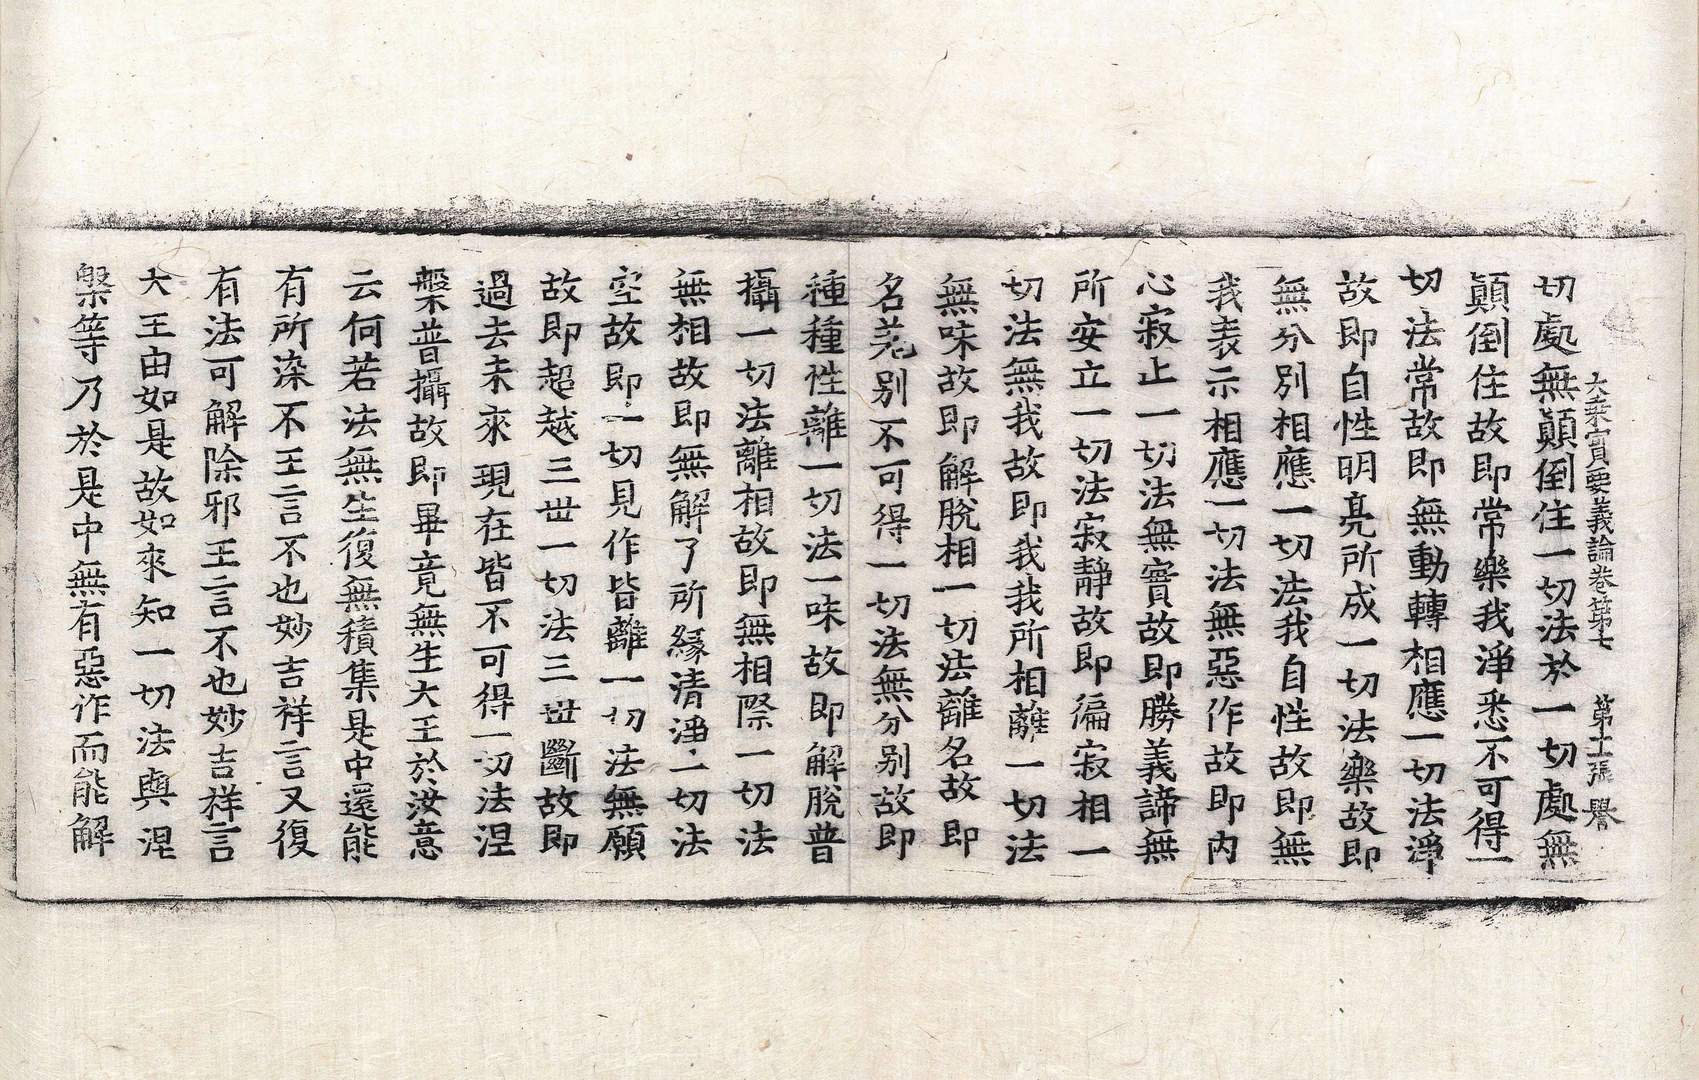 大乘寶要義論卷第七 第十一張 譽
切處無顛倒住一切法於一切處無
顛倒住故即常樂我淨悉不可得一
切法常故即無動轉相應一切法淨
故即自性明亮所成一切法樂故即
無分別相應一切法我自性故即無
我表示相應一切法無惡作故即內
心寂止一切法無實故即勝義諦無
所安立一切法寂靜故即徧寂相一
切法無我故即我我所相離一切法
無味故即解脫相一切法離名故即
名差別不可得一切法無分別故即
種種性離一切法一味故即解脫普
攝一切法離相故即無相際一切法
無相故即無解了所緣清淨一切法
空故即一切見作皆離一切法無願
故即超越三世一切法三世斷故即
過去未來現在皆不可得一切法涅
槃普攝故即畢竟無生大王於汝意
云何若法無生復無積集是中還能
有所染不王言不也妙吉祥言又復
有法可解除邪王言不也妙吉祥言
大王由如是故如來知一切法與涅
槃等乃於是中無有惡作而能解